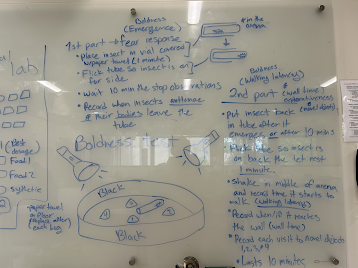 Boldness
(Emergence)
1st part → fear response
• Place insect in vial covered
w/paper towel (1 minute)
• Flick tube so insect is on
side
• Wait 10 min the stop observations
• Record when insects
their bodies leave the
tube
in the
arena
Boldness
(Walking latency)
2nd part
(wall time
(novel objects)
put insect back
in tube after it
emerges or after 10 mins
Flick tube so insect is
on back the let rest
1 minute.
• Shake in middle of arena
and record time it starts to
walk (walking latency)
• Record when it touches
the wall (wall time)
• Record each visit to novel objects
1, 2, 3, 4
• Lasts 10 minutes
Boldness test
Black
Black
lab
Food 1
Food 2
synthetic
paper towel
on floor
(replace after
each bug)